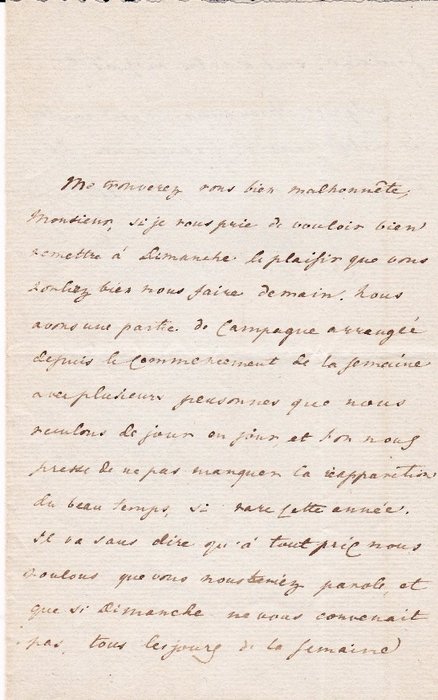 Me trouverez vous bien malhonnête,
Monsieur, si je vous prie de vouloir bien
remettre à Dimanche le plaisir que vous
vouliez bien nous faire demain. Nous
avons une partie de Campagne arrangée
depuis le Commencement de la semaine
avec plusieurs personnes que nous
reculons de jour en jour, et l'on nous
presse de ne pas manquer la réapparition
du beau temps, si rare cette année.
Il va sans dire qu'à tout prix nous
voulons que vous nous teniez parole, et
que si Dimanche ne vous convenait
pas, tous les jours de la semaine